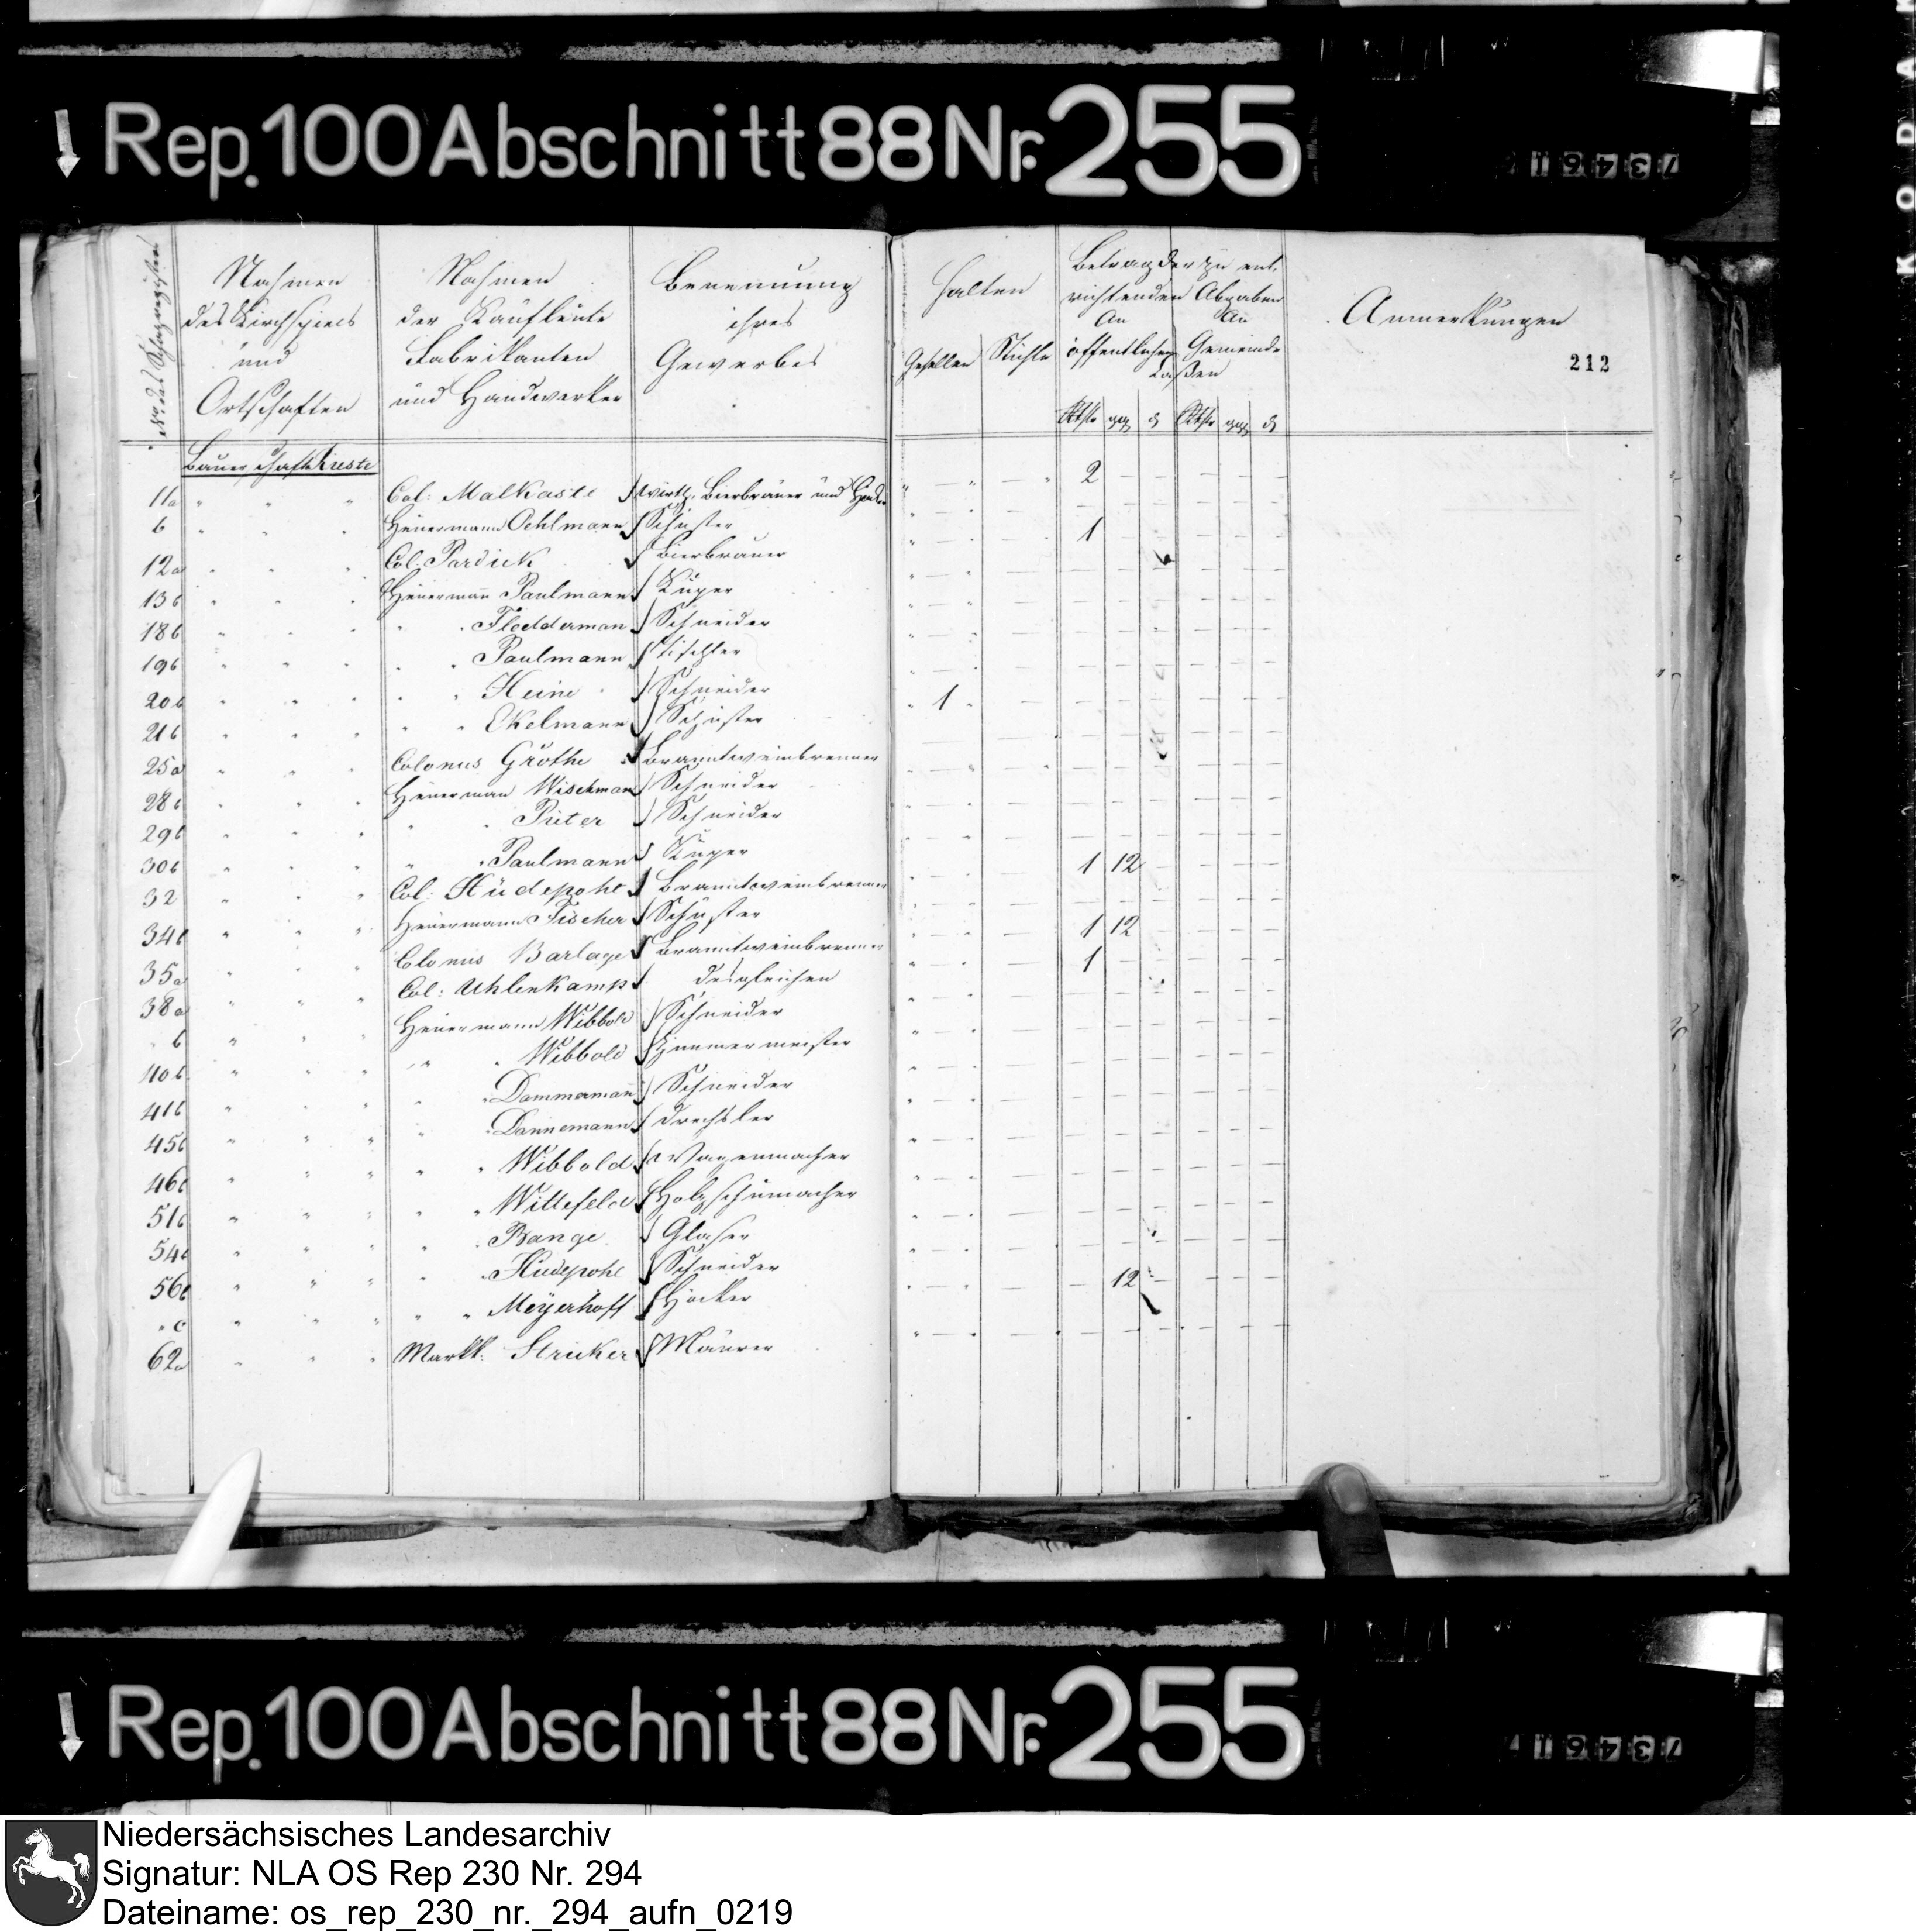 Rep. 100 Abschnitt 88 Nr. 255
73461
KODAK
Nahmen des Kirchspiels und Ortschaften
Nahmen der Kaufleute Fabrikanten und Handwerker
Benennung ihres Gewerbes
Halten
Gesellen Stühle
Betrag der zu entrichtenden Abgaben
An öffentlichen An Gemeinde Caßen
Rthlr ggr d Rthlr ggr d
Anmerkungen
212
Bauerschaft Rieste
11a " " " Col: Malkaste Wirth, Bierbrauer und Höcker " — " — " 2 — — — — —
b " " " Heuermann Oehlmann Schuster
12a " " " Col. Pardick Bierbrauer 1
13b " " " Heuermann Paulmann Küper
18b " " " " " Flodderman Schneider
19b " " " " " Paulmann Tischler
20b " " " " " Heine Schneider
21b " " " " " Ekelmann Schuster 1
25a " " " Colonus Gröthe Branntweinbrenner
28b " " " Heuerman Wischman Schneider
29b " " " " " Püter Schneider
30b " " " " " Paulmann Küper
32 " " " Col: Hüdepohl Branntweinbrenner 1 12
34b " " " Heuermann Fischer Schuster
35a " " " Colonus Barlage Branntweinbrenner 1 12
38a " " " Col: Uhlenkamp desgleichen 1
" b " " " Heuermann Wibbold Schneider
40b " " " " " Wibbold Zimmermeister
41b " " " " " Dammermann Schneider
45b " " " " " Dannemann Drechsler
46b " " " " " Wibbold Wagenmacher
51b " " " " " Wittefeld Holzschumacher
54b " " " " " Range Glaser
56b " " " " " Hüdepohl Schneider
" c " " " " " Meyerhoff Höcker 12
62a " " " Markk: Stricker Maurer
Rep. 100 Abschnitt 88 Nr. 255
73461
Niedersächsisches Landesarchiv
Signatur: NLA OS Rep 230 Nr. 294
Dateiname: os_rep_230_nr._294_aufn_0219